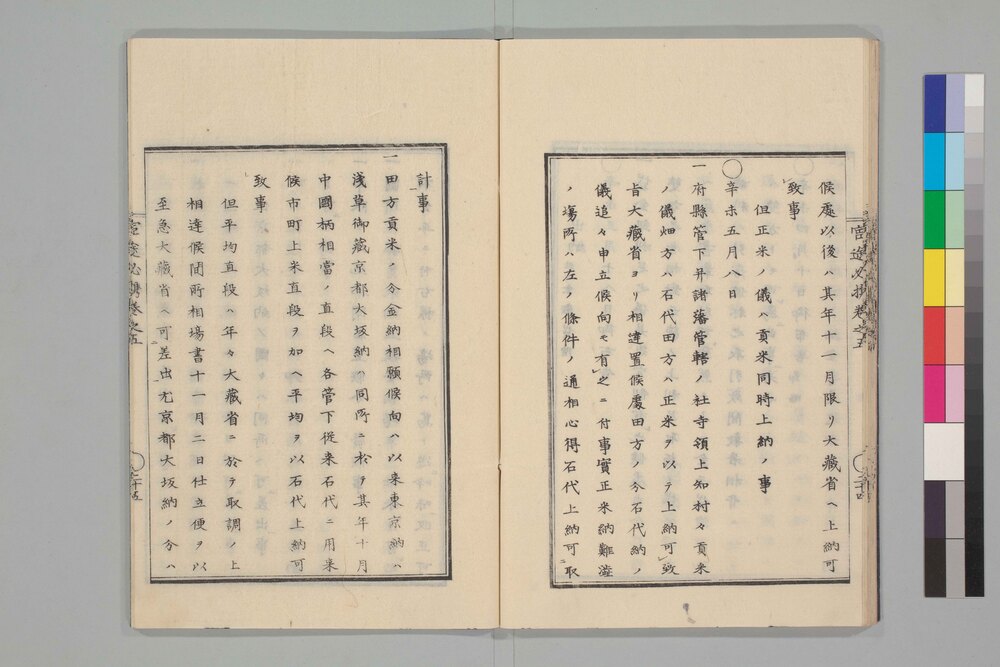 候處以後ハ其年十一月限リ大藏省ヘ上納可
致事
但正米ノ儀ハ貢米同時上納ノ事
〇辛未五月八日
一府縣管下幷諸藩管轄ノ社寺領上知村々貢米
ノ儀畑方ハ石代田方ハ正米ヲ以テ上納可致
旨大藏省ヨリ相達置候處田方ノ分石代納ノ
儀追々申立候向モ有之ニ付事實正米納難澁
ノ場所ハ左ノ條件ノ通相心得石代上納可取
計事
一田方貢米ノ分金納相願候向ハ以来東京納ハ
淺草御藏京都大坂納ハ同所ニ於テ其年十月
中國柄相當ノ直段ヘ各管下從来石代ニ用来
候市町上米直段ヲ加ヘ平均ヲ以石代上納可
致事
但平均直段ハ年々大藏省ニ於テ取調ノ上
相達候間所相場書十一月二日仕立便ヲ以
至急大藏省ヘ可差出尤京都大坂納ノ分ハ
官途必携卷之五